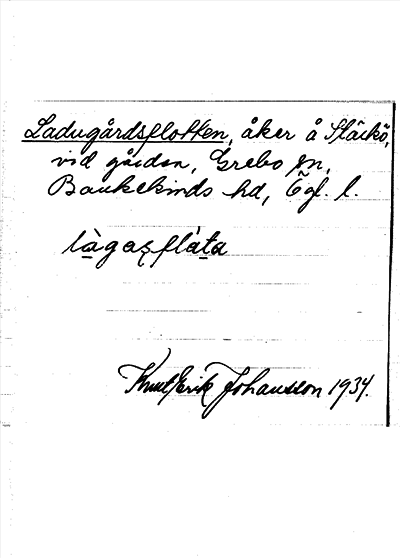 Ladugårdsflotten, åker å Släckö,
vid gården, Grebo sn,
Bankekinds hd, Ögl. l.
làgaʂflåta
Knut Erik Johansson 1934.